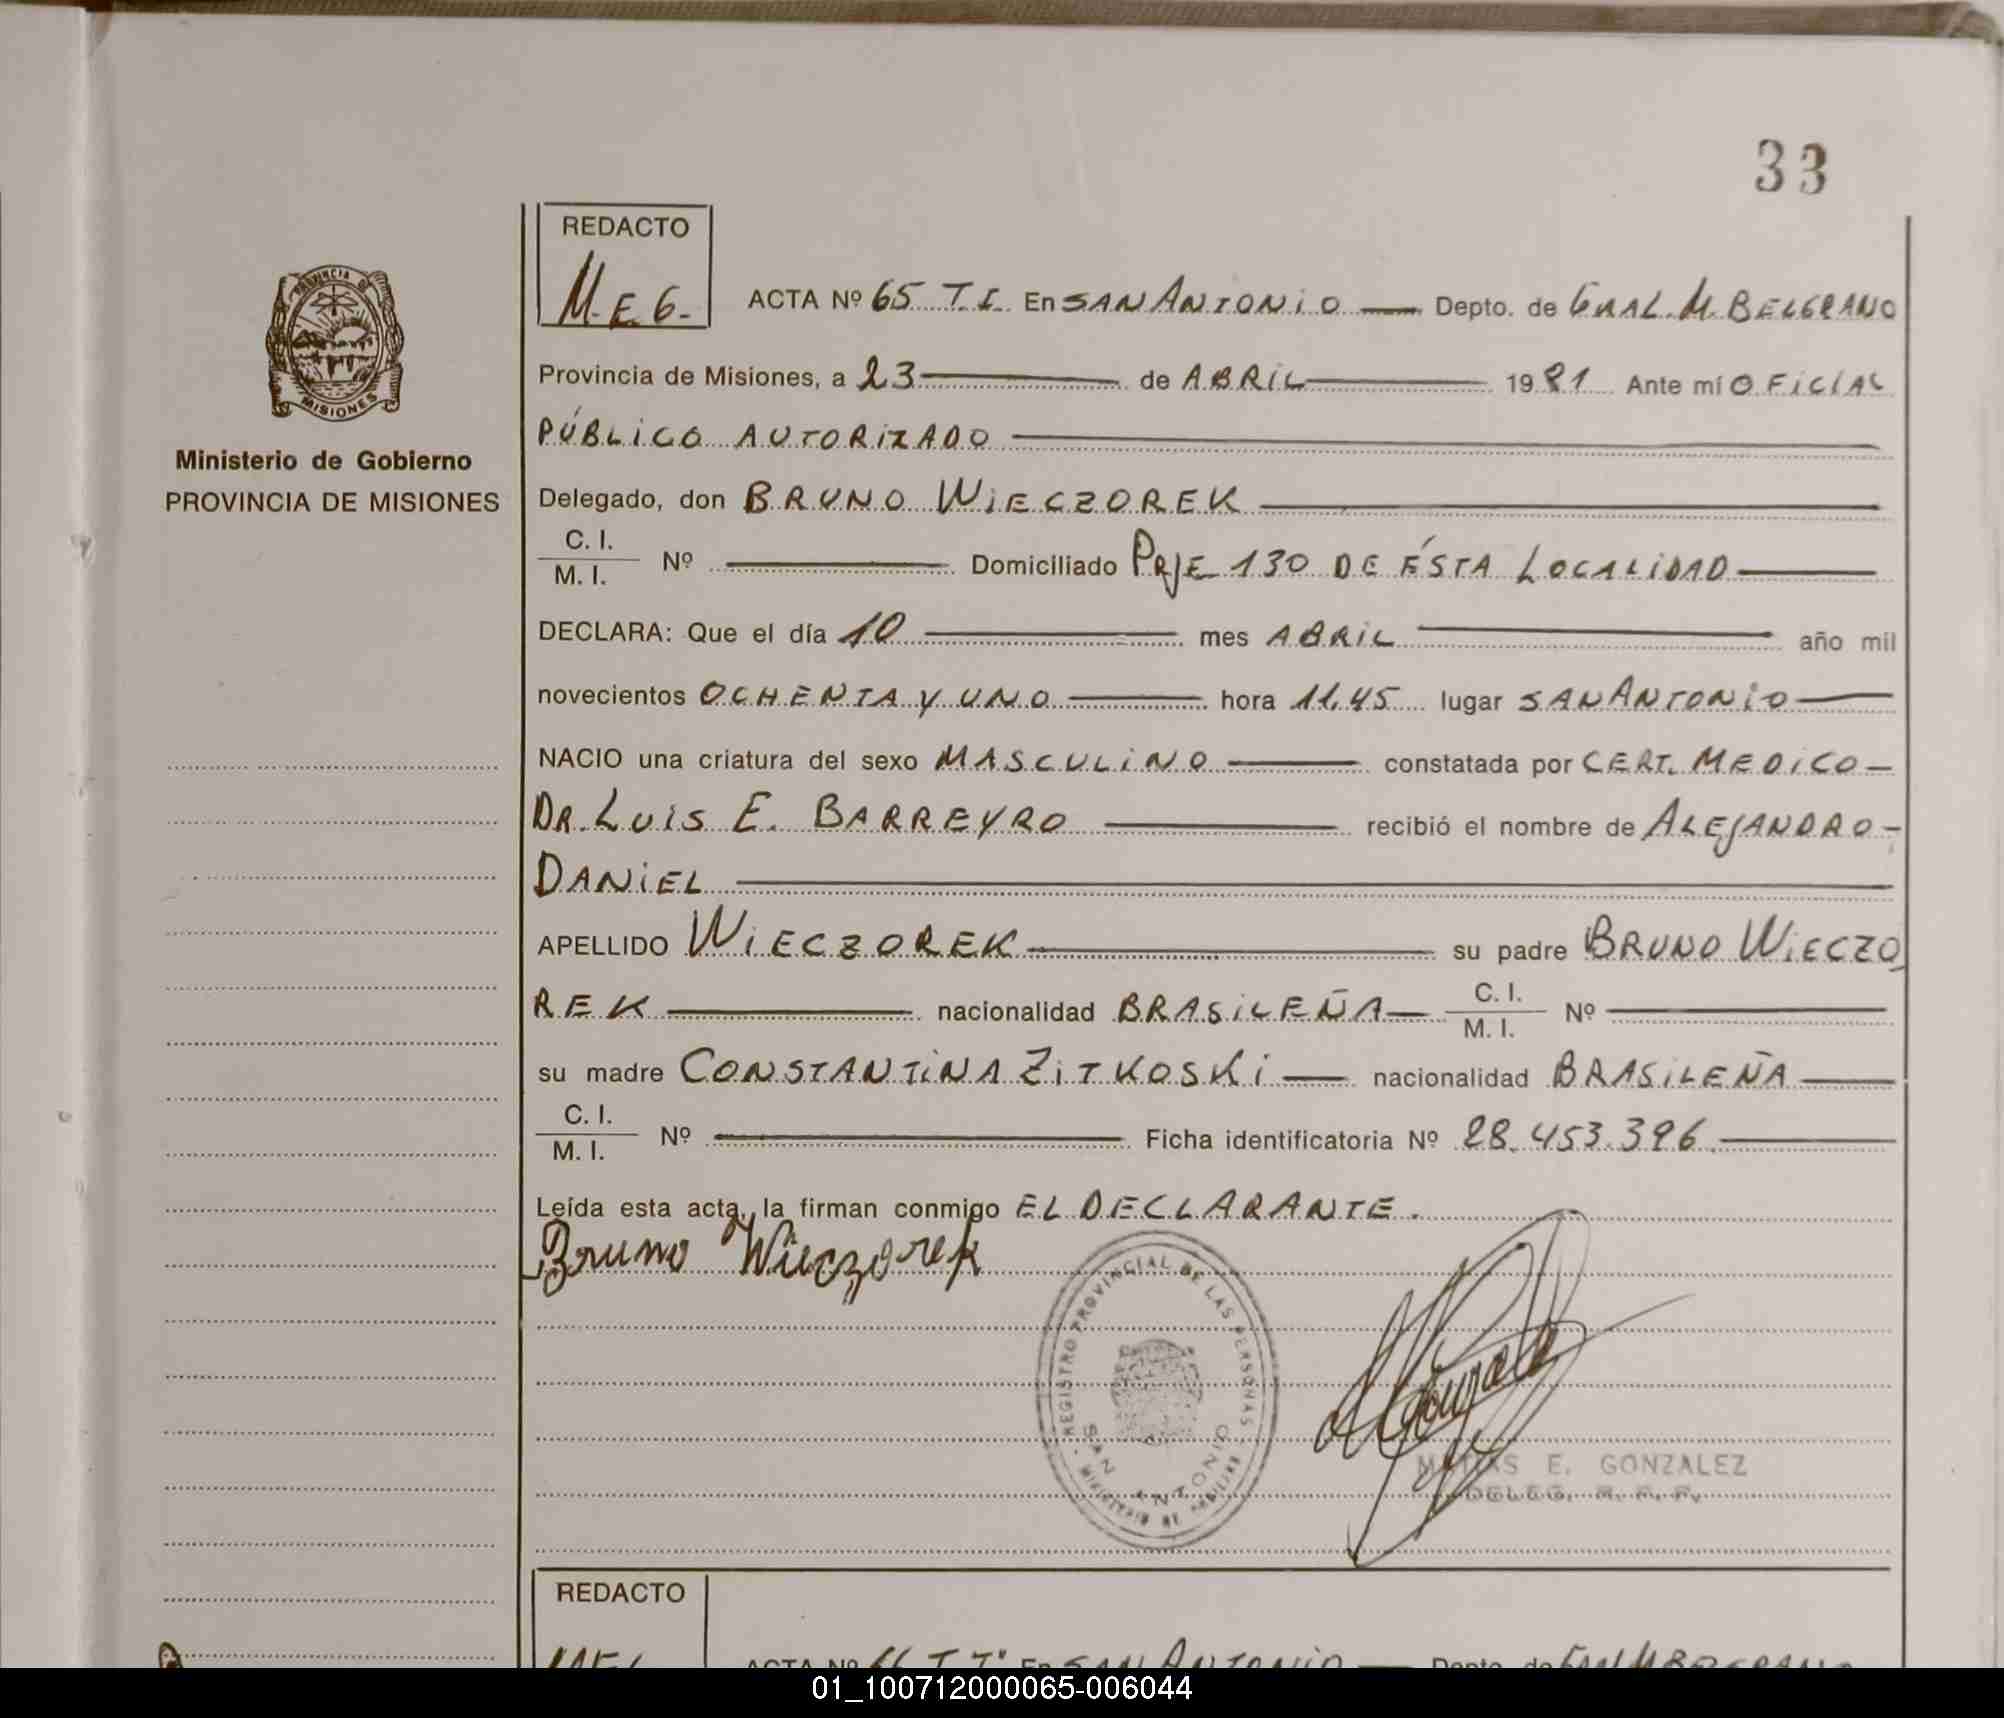 33
REDACTO
M.E.G.-
ACTA Nº 65 T.I. En SAN ANTONIO — Depto. de GRAL. M. BELGRANO
PROVINCIA DE
MISIONES
Ministerio de Gobierno
PROVINCIA DE MISIONES
Provincia de Misiones, a 23 — de ABRIL — 1981 Ante mí OFICIAL
PÚBLICO AUTORIZADO —
Delegado, don BRUNO WIECZOREK —
C. I.
M. I. Nº — Domiciliado PRJE 130 DE ÉSTA LOCALIDAD —
DECLARA: Que el día 10 — mes ABRIL — año mil
novecientos OCHENTA Y UNO — hora 11.45 lugar SAN ANTONIO —
NACIO una criatura del sexo MASCULINO — constatada por CERT. MEDICO —
DR. LUIS E. BARREYRO — recibió el nombre de ALEJANDRO -
DANIEL —
APELLIDO WIECZOREK — su padre BRUNO WIECZO
REK — nacionalidad BRASILEÑA — C. I. M. I. Nº —
su madre CONSTANTINA ZITKOSKI — nacionalidad BRASILEÑA —
C. I.
M. I. Nº — Ficha identificatoria Nº 28.453.396 —
Leída esta acta, la firman conmigo EL DECLARANTE.
Bruno Wieczorek
REGISTRO PROVINCIAL DE LAS PERSONAS
SAN ANTONIO
MINISTERIO DE GOBIERNO
MATIAS E. GONZALEZ
DELEG. R. P. P.
REDACTO
ACTA Nº 66 T.I. En SAN ANTONIO — Depto. de GRAL M BELGRANO
01_100712000065-006044